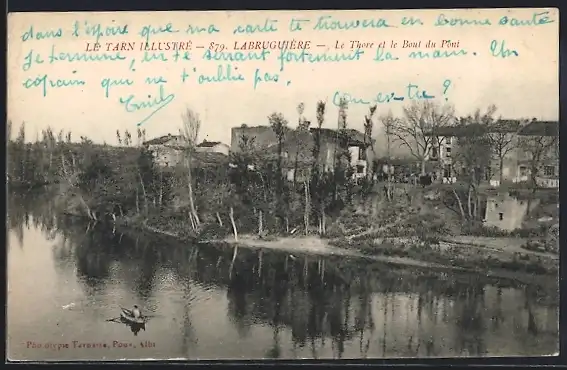 dans l'espoire que ma carte te trouvera en bonne santé
LE TARN ILLUSTRÉ — 879. LABRUGUIÈRE — Le Thore et le Bout du Pont
Je termine, en te serrant fortement la main. Un
copain qui ne t'oublie pas.
Emile
Phototypie Tarnaise, Poux, Albi